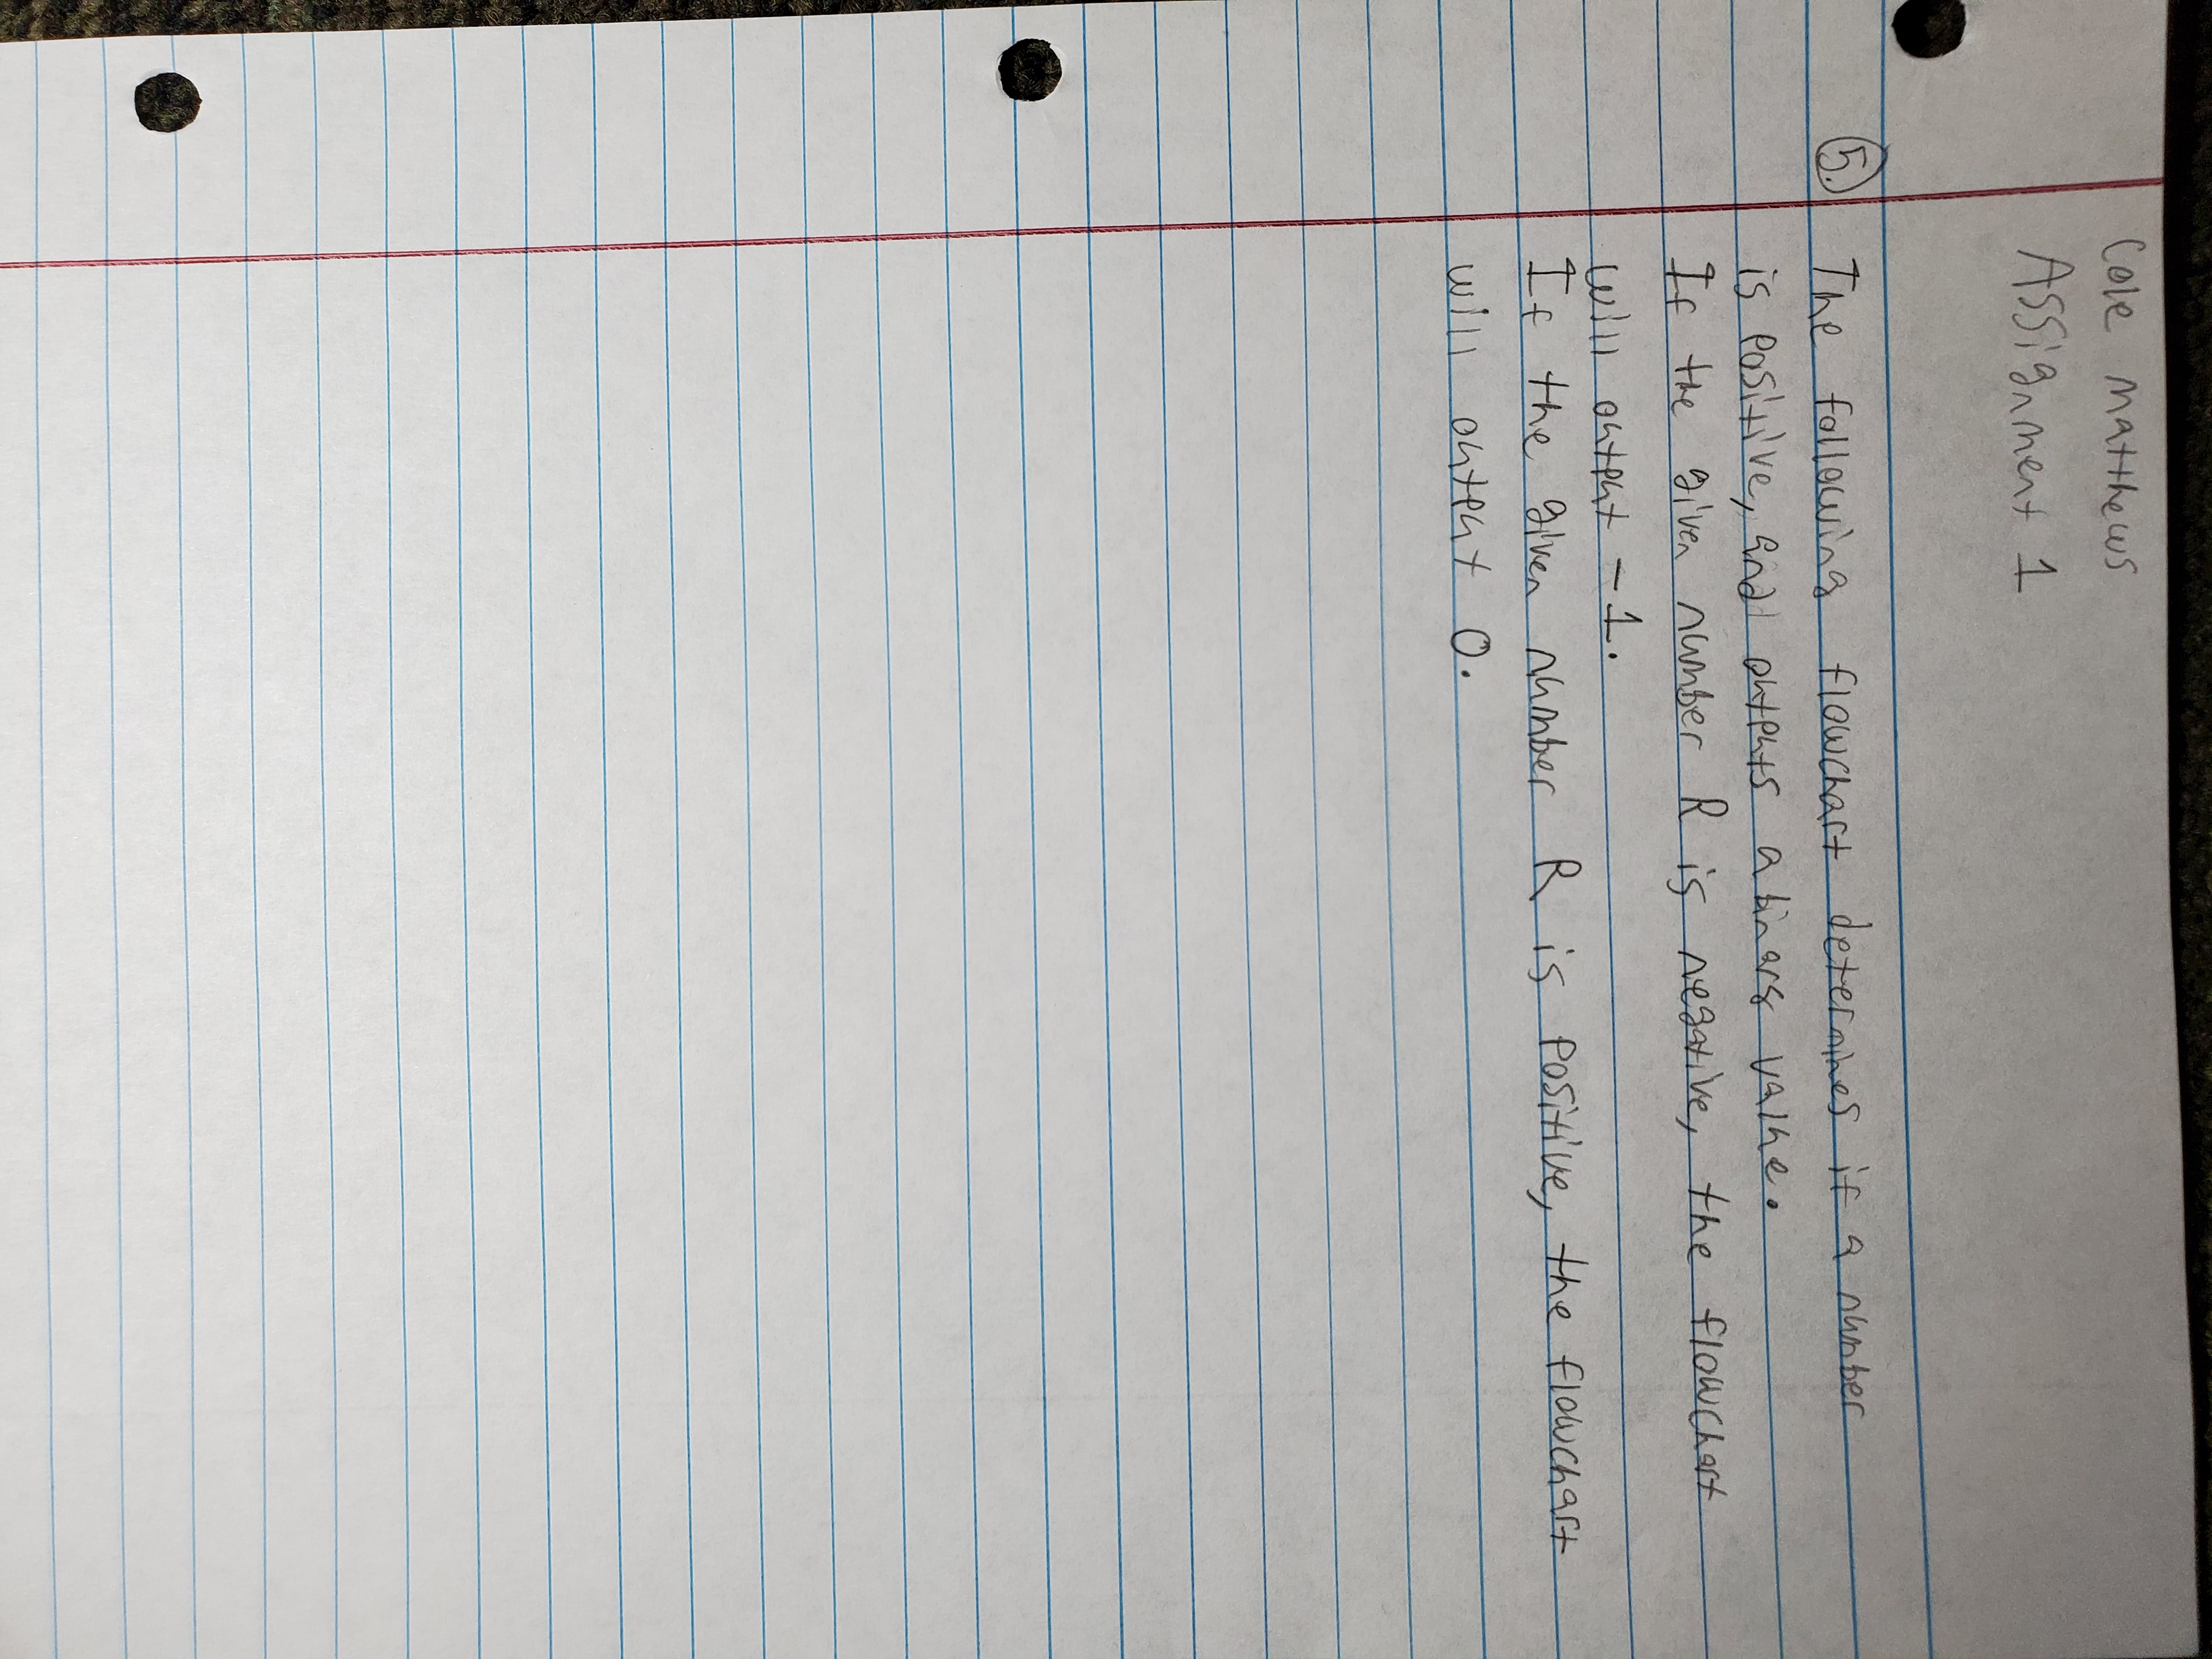 Cole Matthews
Assignment 1
5.) The following flowchart determines if a number
is positive, and outputs a binary value.
If the given number R is negative, the flowchart
will output -1.
If the given number R is positive, the flowchart
will output 0.